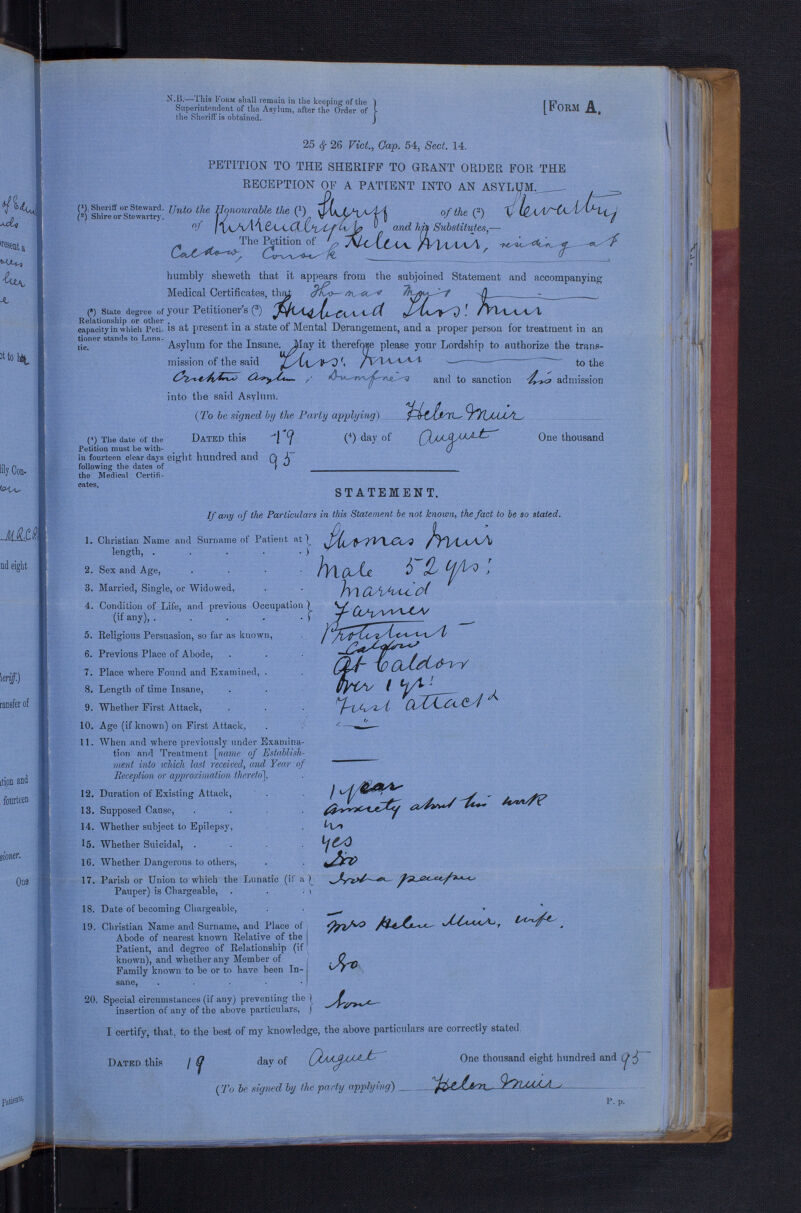 N.B.—This Form shall remain in the keeping of the
Superintendent of the Asylum, after the Order of
the Sheriff is obtained.
[Form A.
25 & 26 Vict., Cap. 54, Sect. 14.
PETITION TO THE SHERIFF TO GRANT ORDER FOR THE
RECEPTION OF A PATIENT INTO AN ASYLUM.
(¹) Sheriff or Steward.
(²) Shire or Stewartry.
Unto the Honourable the (¹) Sheriff of the (²) Stewartry
of Kirkcudbright and his Substitutes,—
The Petition of Helen Muir, residing at
Caldow, Corsock
humbly sheweth that it appears from the subjoined Statement and accompanying
Medical Certificates, that Thomas Muir
(³) State degree of
Relationship or other
capacity in which Peti-
tioner stands to Luna-
tic.
your Petitioner's (³) Husband Thos! Muir
is at present in a state of Mental Derangement, and a proper person for treatment in an
Asylum for the Insane. May it therefore please your Lordship to authorize the trans-
mission of the said Thos! Muir to the
Crichton Asylum, Dumfries and to sanction his admission
into the said Asylum.
(To be signed by the Party applying) Helen Muir
(⁴) The date of the
Petition must be with-
in fourteen clear days
following the dates of
the Medical Certifi-
cates,
Dated this 19 (⁴) day of August One thousand
eight hundred and 95
STATEMENT.
If any of the Particulars in this Statement be not known, the fact to be so stated.
1. Christian Name and Surname of Patient at
length, . Thomas Muir
2. Sex and Age, Male 52 yrs!
3. Married, Single, or Widowed, Married
4. Condition of Life, and previous Occupation
(if any), . Farmer
5. Religious Persuasion, so far as known, Protestant
6. Previous Place of Abode, Caldow
7. Place where Found and Examined, . At Caldow
8. Length of time Insane, Over 1 yr!
9. Whether First Attack, First attack
10. Age (if known) on First Attack, — " —
11. When and where previously under Examina-
tion and Treatment [name of Establish-
ment into which last received, and Year of
Reception or approximation thereto]. —
12. Duration of Existing Attack, 1 year
13. Supposed Cause, anxiety about his work
14. Whether subject to Epilepsy, no
15. Whether Suicidal, . yes
16. Whether Dangerous to others, No
17. Parish or Union to which the Lunatic (if a
Pauper) is Chargeable, . Not a pauper
18. Date of becoming Chargeable, —
19. Christian Name and Surname, and Place of
Abode of nearest known Relative of the
Patient, and degree of Relationship (if
known), and whether any Member of
Family known to be or to have been In-
sane, .
Mrs Helen Muir, wife.
No
20. Special circumstances (if any) preventing the
insertion of any of the above particulars, None
I certify, that, to the best of my knowledge, the above particulars are correctly stated
Dated this 19 day of August One thousand eight hundred and 95
(To be signed by the party applying) Helen Muir
P. p.